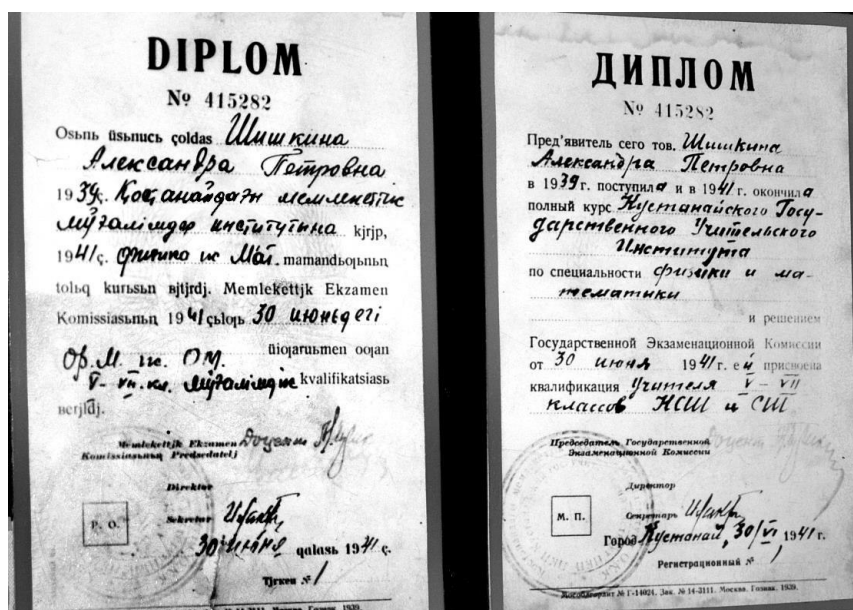 DIPLOM
№ 415282
Osьnь ūsьnuсь çoldas Шишкина
Александра Петровна
1939ç. Қостанайдағы мемлекеттік
мұғалімдер институтына kjrjp,
1941ç. физика һс Мат. mamandьqьnьꞑ
tolьq kursьsьn вjtjrdj. Memlekettjk Ekzamen
Komissiasьnьꞑ 1941 çьlqь 30 июньдегі
ūiqaruьmen oqan
V - VII. кл. мұғалімдік kvalifikatsiasь
вerjldj.
Memlekettjk Ekzamen Доцент
Komissiasьnьꞑ Predsedatelj
Direktor
P. O.
Sekretar
30 июня qalasь 1941 ç.
Tjrkeu № 1
№ 14-3111. Москва. Гознак. 1939.
ДИПЛОМ
№ 415282
Пред'явитель сего тов. Шишкина
Александра Петровна
в 1939 г. поступила и в 1941 г. окончила
полный курс Кустанайского Госу-
дарственного Учительского
Института
по специальности физики и ма-
тематики
и решением
Государственной Экзаменационной Комиссии
от 30 июня 1941 г. ей присвоена
квалификация Учителя V - VII
классов НСШ и СШ
Председатель Государственной Доцент
Экзаменационной Комиссии
Директор
М. П.
Секретарь
Город Кустанай, 30/VI 1941 г.
Регистрационный № 1
Мособлгорлит № Г-14024. Зак. № 14-3111. Москва. Гознак. 1939.